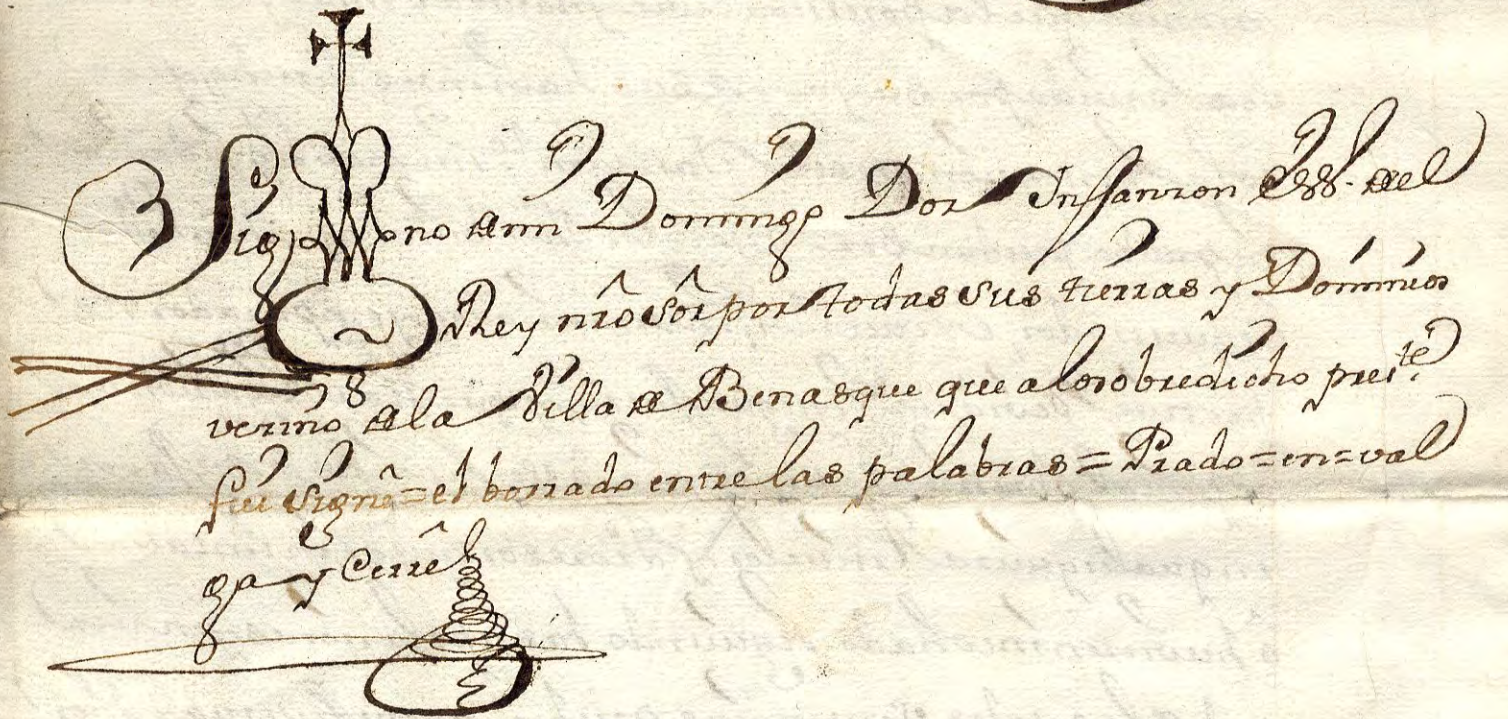 Sig no de mi Domingo Dor Infanzon Essº. del
Rey nrô Sôr por todas sus tierras y Dominios
vezino de la Villa de Benasque que a lo sobredicho preste.
fui Signê = el borrado entre las palabras = Prado = en = val
ga y Cerrê